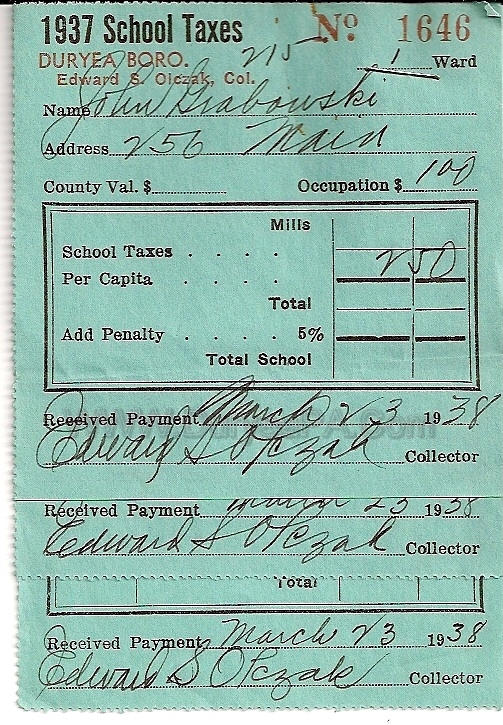 1937 School Taxes No 1646
DURYEA BORO. 215 1 Ward
Edward S. Olczak, Col.
Name John Grabowski
Address 256 Main
County Val. $ Occupation $ 100
Mills
School Taxes . . . . 2 50
Per Capita . . . .
Total
Add Penalty . . . . 5%
Total School
Received Payment March 23 1938
Edward S Olczak Collector
Received Payment March 23 1938
Edward S Olczak Collector
Total
Received Payment March 23 1938
Edward S Olczak Collector